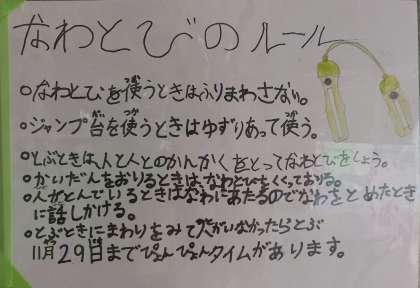 なわとびのルール
○なわとびを使うときはふりまわさない。
○ジャンプ台を使うときはゆずりあって使う。
○とぶときは、人と人とのかんかくをとってなわとびをしよう。
○かいだんをおりるときは、なわとびをくくっておりる。
○人がとんでいるときはなわにあたるのでなわをとめたとき
に話しかける。
○とぶときにまわりをみて人がいなかったらとぶ
11月29日までぴょんぴょんタイムがあります。